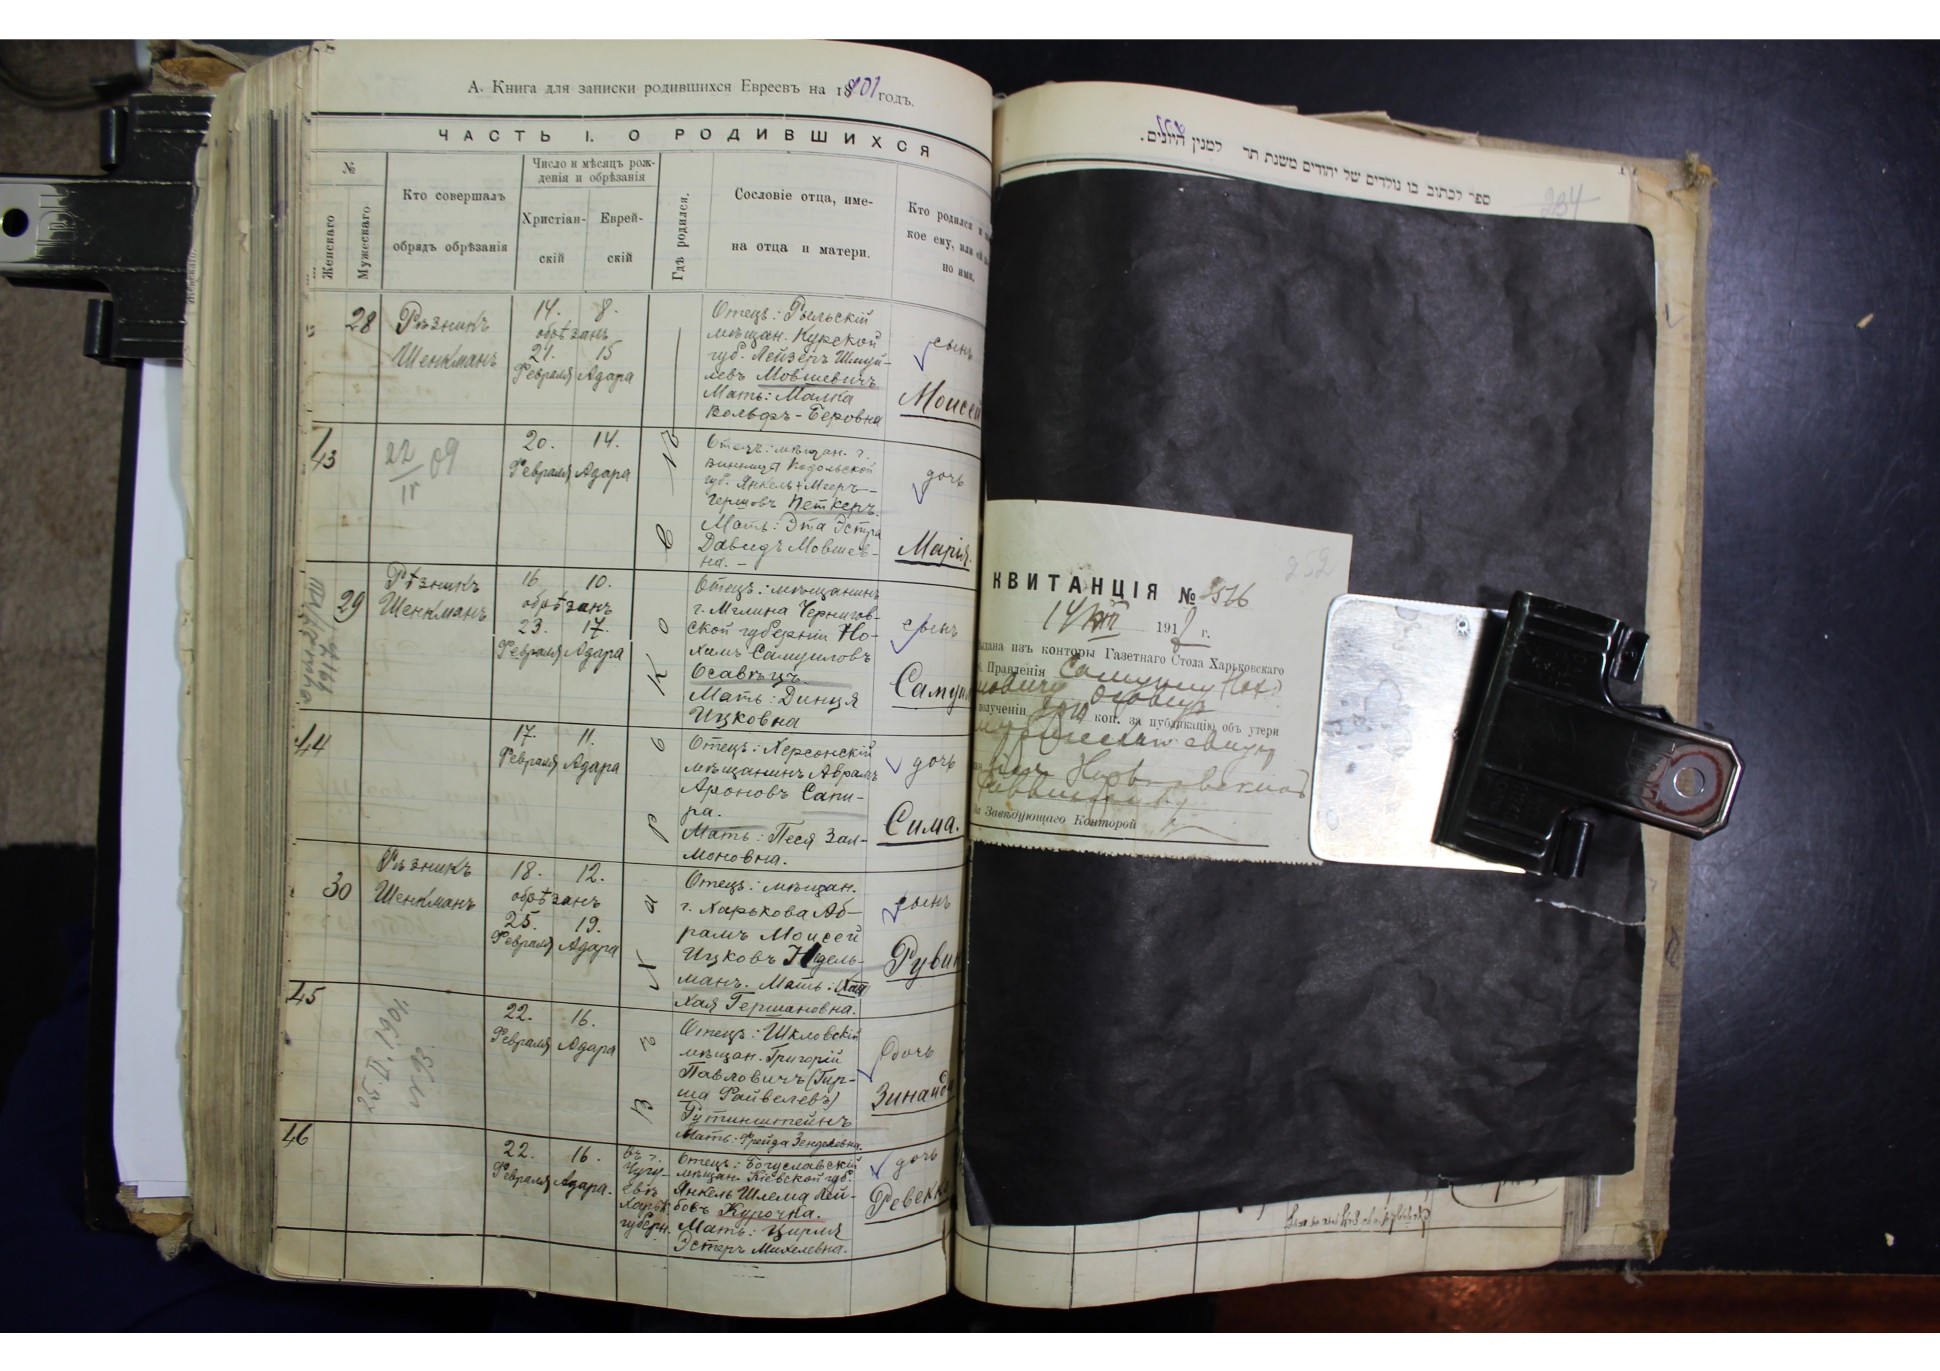 А. Книга для записки родившихся Евреевъ на 1901 годъ.
ЧАСТЬ I. О РОДИВШИХСЯ
№
Женскаго
Мужескаго
Кто совершалъ
обрядъ обрѣзанія
Число и мѣсяцъ рож-
денія и обрѣзанія
Христіан-
скій
Еврей-
скій
Гдѣ родился.
Сословіе отца, име-
на отца и матери.
Кто родился и
кое ему, или ей
но имя.
28
Рѣзникъ
Шенкманъ
14. 8.
обрѣзанъ
21. 15
Февраля Адара
Отецъ: Рыльскій
мѣщан. Курской
губ. Лейзеръ Шмуй-
левъ Мовшевичъ
Мать: Малка
Вольфъ-Беровна
сынъ
Моисей
43
22/II 09
20. 14.
Февраля Адара
Отецъ: мѣщан. г.
Винница Подольской
губ. Янкель Мееръ-
Гершовъ Петкеръ.
Мать: Эта Эстра
Давидъ Мовшев-
на. -
дочь
Марія.
29
Рѣзникъ
Шенкманъ
16. 10.
обрѣзанъ
23. 17.
Февраля Адара
Отецъ: мѣщанинъ
г. Мглина Чернигов-
ской губерніи Но-
химъ Самуиловъ
Осавецъ.
Мать: Динця
Ицковна
сынъ
Самуил
44
17. 11.
Февраля Адара
Отецъ: Херсонскій
мѣщанинъ Аврамъ
Ароновъ Сапи-
ра.
Мать: Песя Зал-
моновна.
дочь
Сима.
30
Рѣзникъ
Шенкманъ
18. 12.
обрѣзанъ
25. 19.
Февраля Адара
Отецъ: мѣщан.
г. Харькова Аб-
рамъ Моисей
Ицковъ Нудель-
манъ. Мать: Хая
Хая Гершановна.
сынъ
Рувин
45
22. 16.
Февраля Адара
Отецъ: Шкловскій
мѣщан. Григорій
Павловичъ (Гир-
ша Файвелевъ)
Рутинштейнъ
Мать: Фрейда Зенделевна.
дочь
Зинаид
46
22. 16.
Февраля Адара.
Въ г.
Чугу-
евѣ
Харьк.
губерн.
Отецъ: Богуславскій
мѣщан. Кіевской губ.
Янкель Шлема Лей-
бовъ Курочка.
Мать: Цирля
Эстеръ Михелевна.
дочь
Ревекка
в Харьковѣ
ספר לכתוב בו נולדים של יהודים משנת תר למנין היונים.
234
252
КВИТАНЦІЯ № 2576
14/VIII 191 г.
дана изъ конторы Газетнаго Стола Харьковскаго
Правленія Самуилу Нох
Осовецъ
полученіи коп. за публикацію объ утери
За Завѣдующаго Конторой